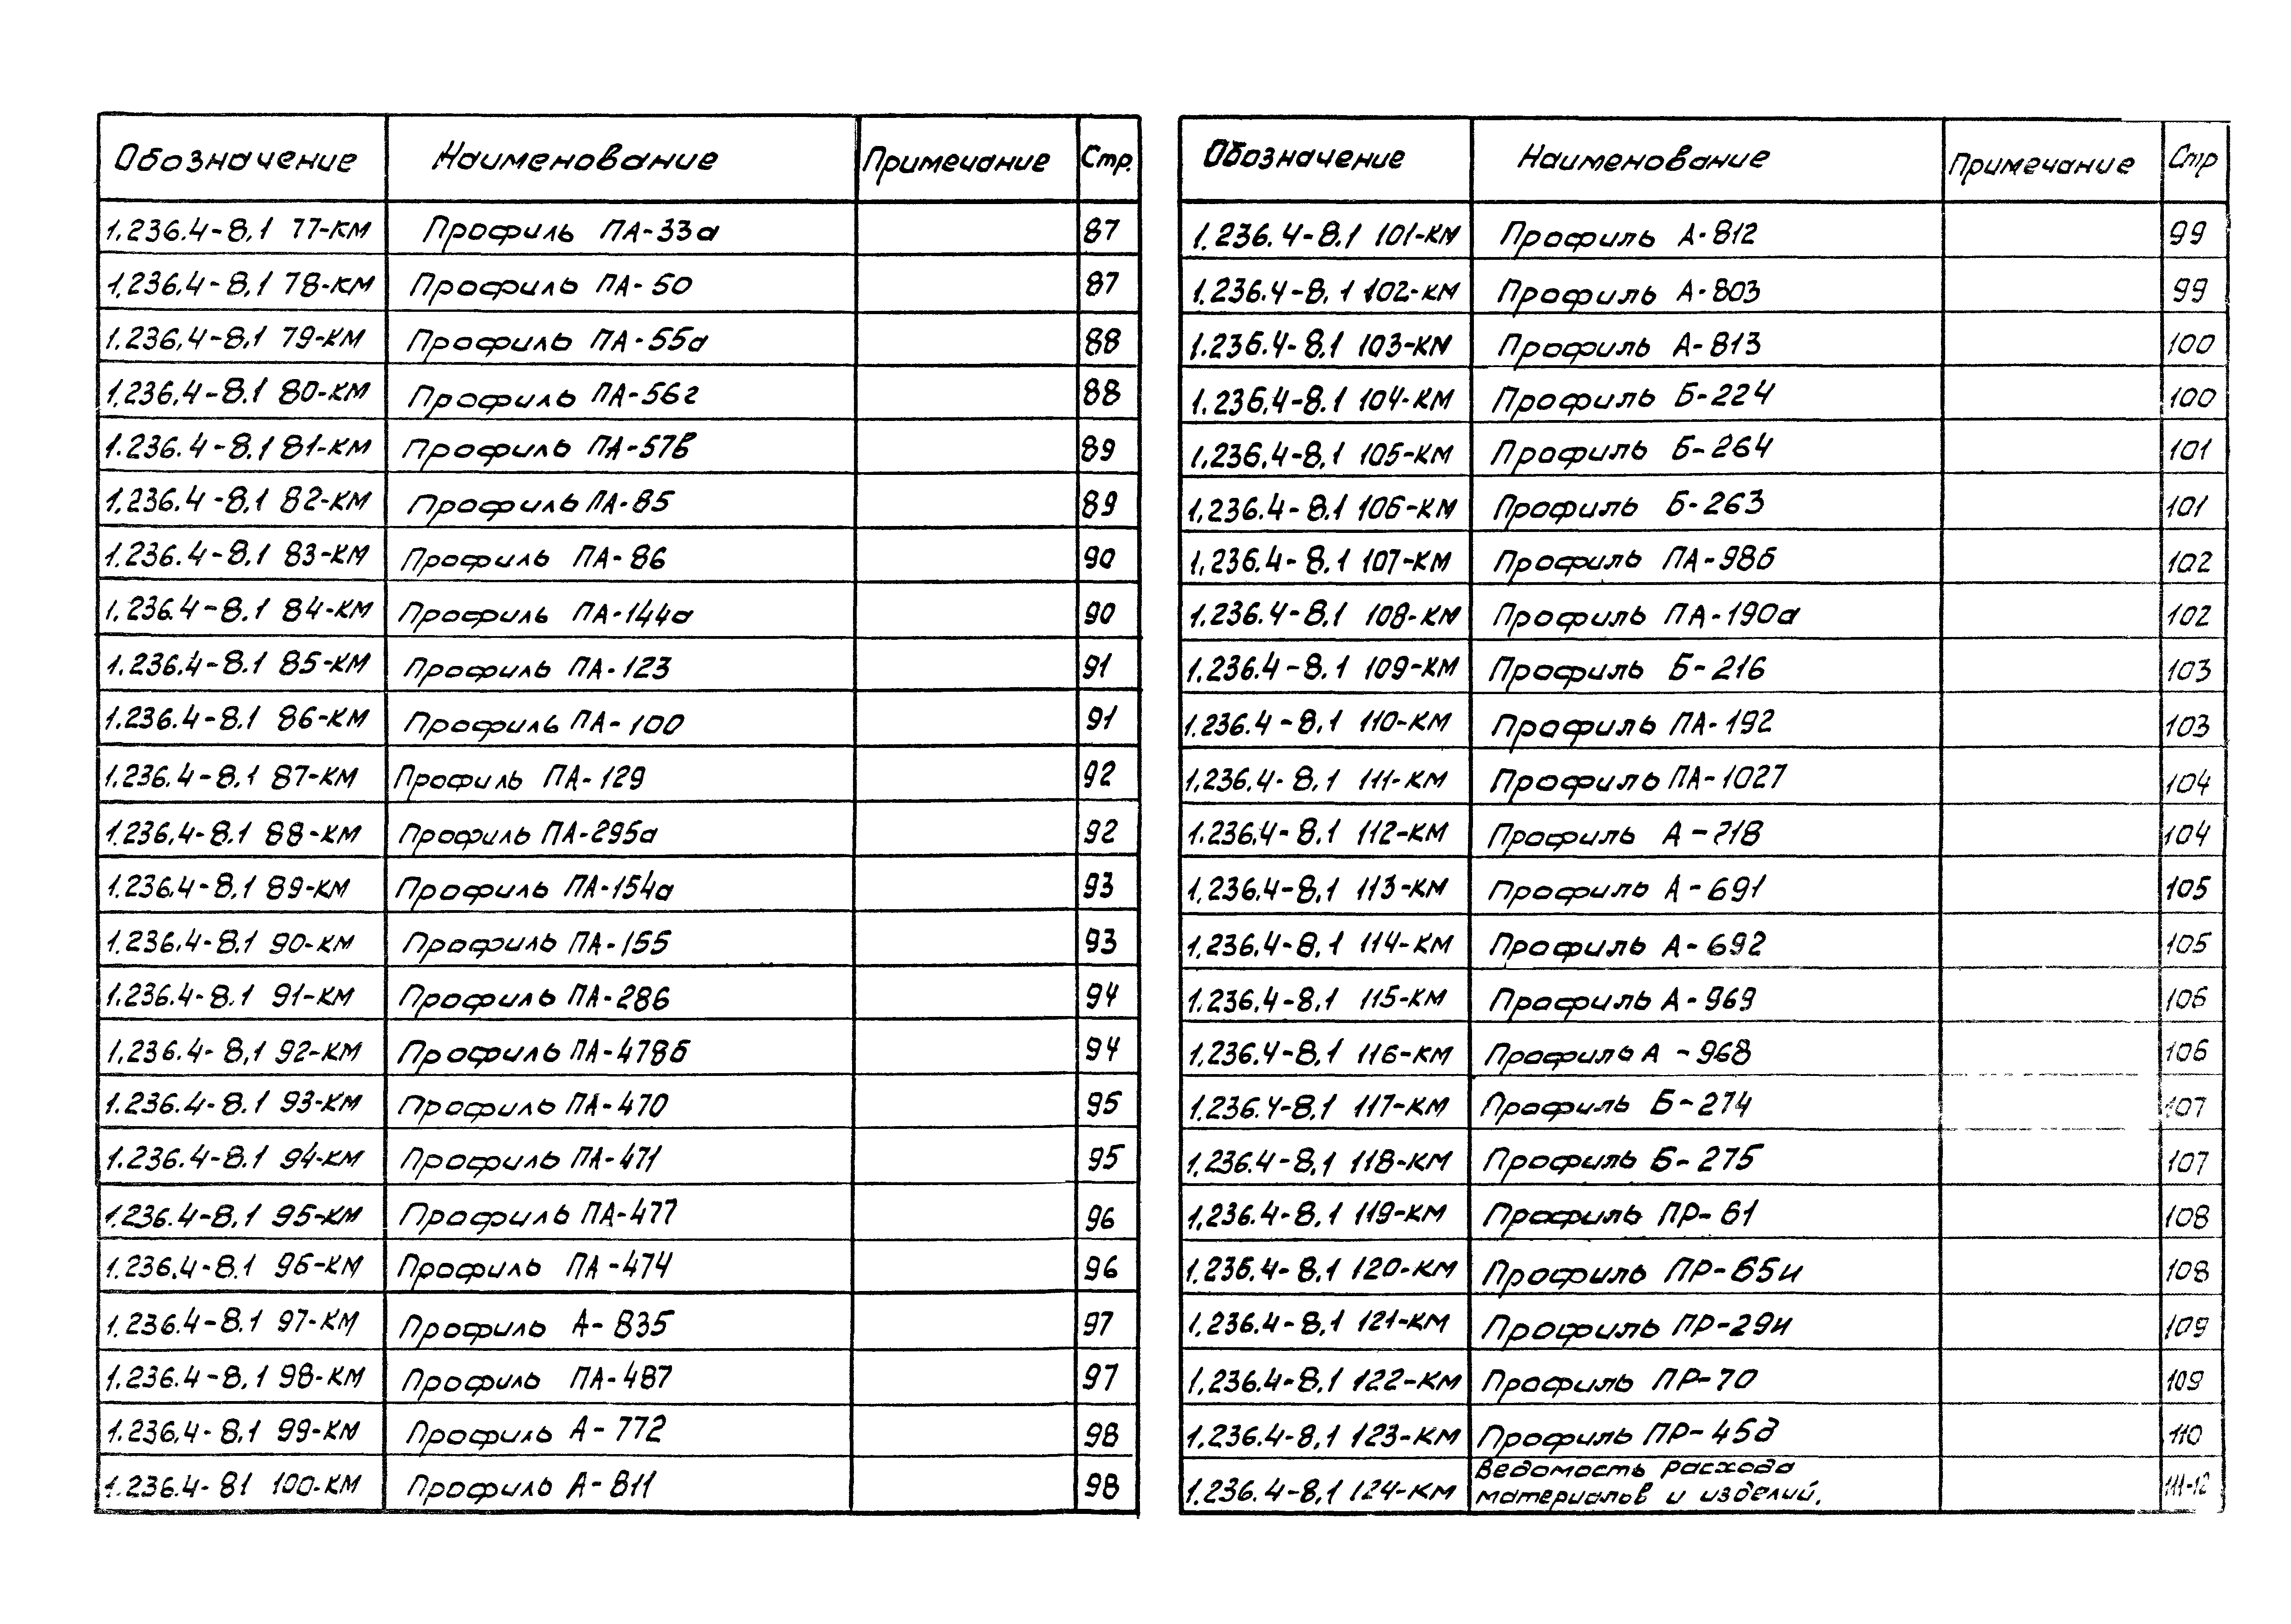 Обозначение Наименование Примечание Стр.
1.236.4-8.1 77-КМ Профиль ПА-33а 87
1.236.4-8.1 78-КМ Профиль ПА-50 87
1.236.4-8.1 79-КМ Профиль ПА-55а 88
1.236.4-8.1 80-КМ Профиль ПА-56г 88
1.236.4-8.1 81-КМ Профиль ПА-57в 89
1.236.4-8.1 82-КМ Профиль ПА-85 89
1.236.4-8.1 83-КМ Профиль ПА-86 90
1.236.4-8.1 84-КМ Профиль ПА-144а 90
1.236.4-8.1 85-КМ Профиль ПА-123 91
1.236.4-8.1 86-КМ Профиль ПА-100 91
1.236.4-8.1 87-КМ Профиль ПА-129 92
1.236.4-8.1 88-КМ Профиль ПА-295а 92
1.236.4-8.1 89-КМ Профиль ПА-154а 93
1.236.4-8.1 90-КМ Профиль ПА-155 93
1.236.4-8.1 91-КМ Профиль ПА-286 94
1.236.4-8.1 92-КМ Профиль ПА-478б 94
1.236.4-8.1 93-КМ Профиль ПА-470 95
1.236.4-8.1 94-КМ Профиль ПА-471 95
1.236.4-8.1 95-КМ Профиль ПА-477 96
1.236.4-8.1 96-КМ Профиль ПА-474 96
1.236.4-8.1 97-КМ Профиль А-835 97
1.236.4-8.1 98-КМ Профиль ПА-487 97
1.236.4-8.1 99-КМ Профиль А-772 98
1.236.4-81 100-КМ Профиль А-811 98
Обозначение Наименование Примечание Стр
1.236.4-8.1 101-КМ Профиль А-812 99
1.236.4-8.1 102-КМ Профиль А-803 99
1.236.4-8.1 103-КМ Профиль А-813 100
1.236.4-8.1 104-КМ Профиль Б-224 100
1.236.4-8.1 105-КМ Профиль Б-264 101
1.236.4-8.1 106-КМ Профиль Б-263 101
1.236.4-8.1 107-КМ Профиль ПА-98б 102
1.236.4-8.1 108-КМ Профиль ПА-190а 102
1.236.4-8.1 109-КМ Профиль Б-216 103
1.236.4-8.1 110-КМ Профиль ПА-192 103
1.236.4-8.1 111-КМ Профиль ПА-1027 104
1.236.4-8.1 112-КМ Профиль А-718 104
1.236.4-8.1 113-КМ Профиль А-691 105
1.236.4-8.1 114-КМ Профиль А-692 105
1.236.4-8.1 115-КМ Профиль А-969 106
1.236.4-8.1 116-КМ Профиль А-968 106
1.236.4-8.1 117-КМ Профиль Б-274 107
1.236.4-8.1 118-КМ Профиль Б-275 107
1.236.4-8.1 119-КМ Профиль ПР-61 108
1.236.4-8.1 120-КМ Профиль ПР-65и 108
1.236.4-8.1 121-КМ Профиль ПР-29и 109
1.236.4-8.1 122-КМ Профиль ПР-70 109
1.236.4-8.1 123-КМ Профиль ПР-45д 110
1.236.4-8.1 124-КМ Ведомость расхода
материалов и изделий. 111-12